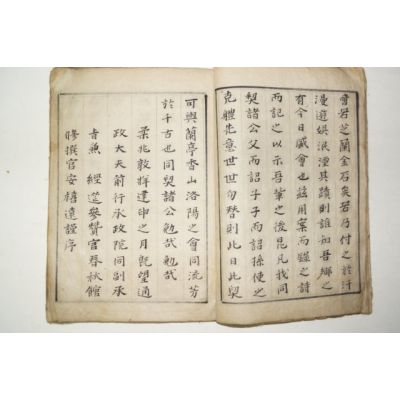 會若芝蘭金石矣若乃付之於汗
漫遊娛泯湮其蹟則誰知吾鄉之
有今日盛會也玆用案而錄之詩
而記之以示吾輩之後昆凡我同
契諸公父而詔子子而詔孫使之
克體先意世世勿替則此日此契
可與蘭亭香山洛陽之會同流芳
於千古也同契諸公勉哉勉哉
柔兆敦牂建申之月旣望通
政大夫前行承政院同副承
旨兼 經筵參贊官春秋館
修撰官安禧遠謹序